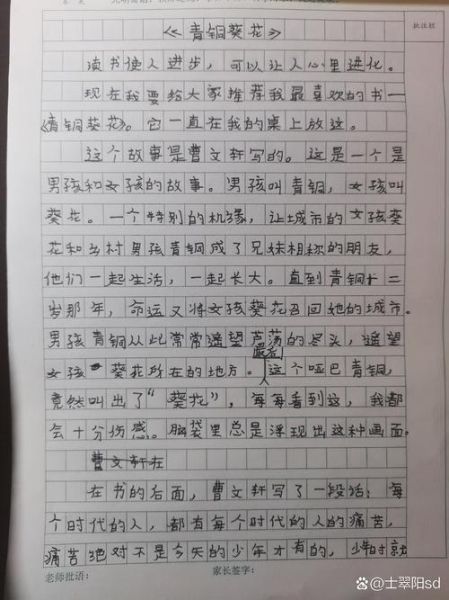 《青铜葵花》
批注栏
读书使人进步，可以让人心里进化。
现在我要给大家推荐我最喜欢的书一
《青铜葵花》。它一直在我的桌上放这。
这个故事是曹文轩写的。这是一个是
男孩和女孩的故事。男孩叫青铜，女孩叫
葵花。一个特别的机缘，让城市的女孩葵
花和乡村男孩青铜成了兄妹相称的朋友，
他们一起生活，一起长大。直到青铜十二
岁那年，命运又将女孩葵花召回她的城市。
男孩青铜从此常常遥望芦荡的尽头，遥望
女孩葵花所在的地方。最后这个哑巴青铜，
竟然叫出了“葵花”，每每看到这，我都
会十分伤感。脑袋里总是浮现出这种画面。
曹文轩在
在书的后面，曹文轩写了一段话：每
个时代的人，都有每个时代的人的痛苦，
痛苦绝对不是今天的少年才有的，少年时就
老师批语： 家长签字：
@士翠阳sd